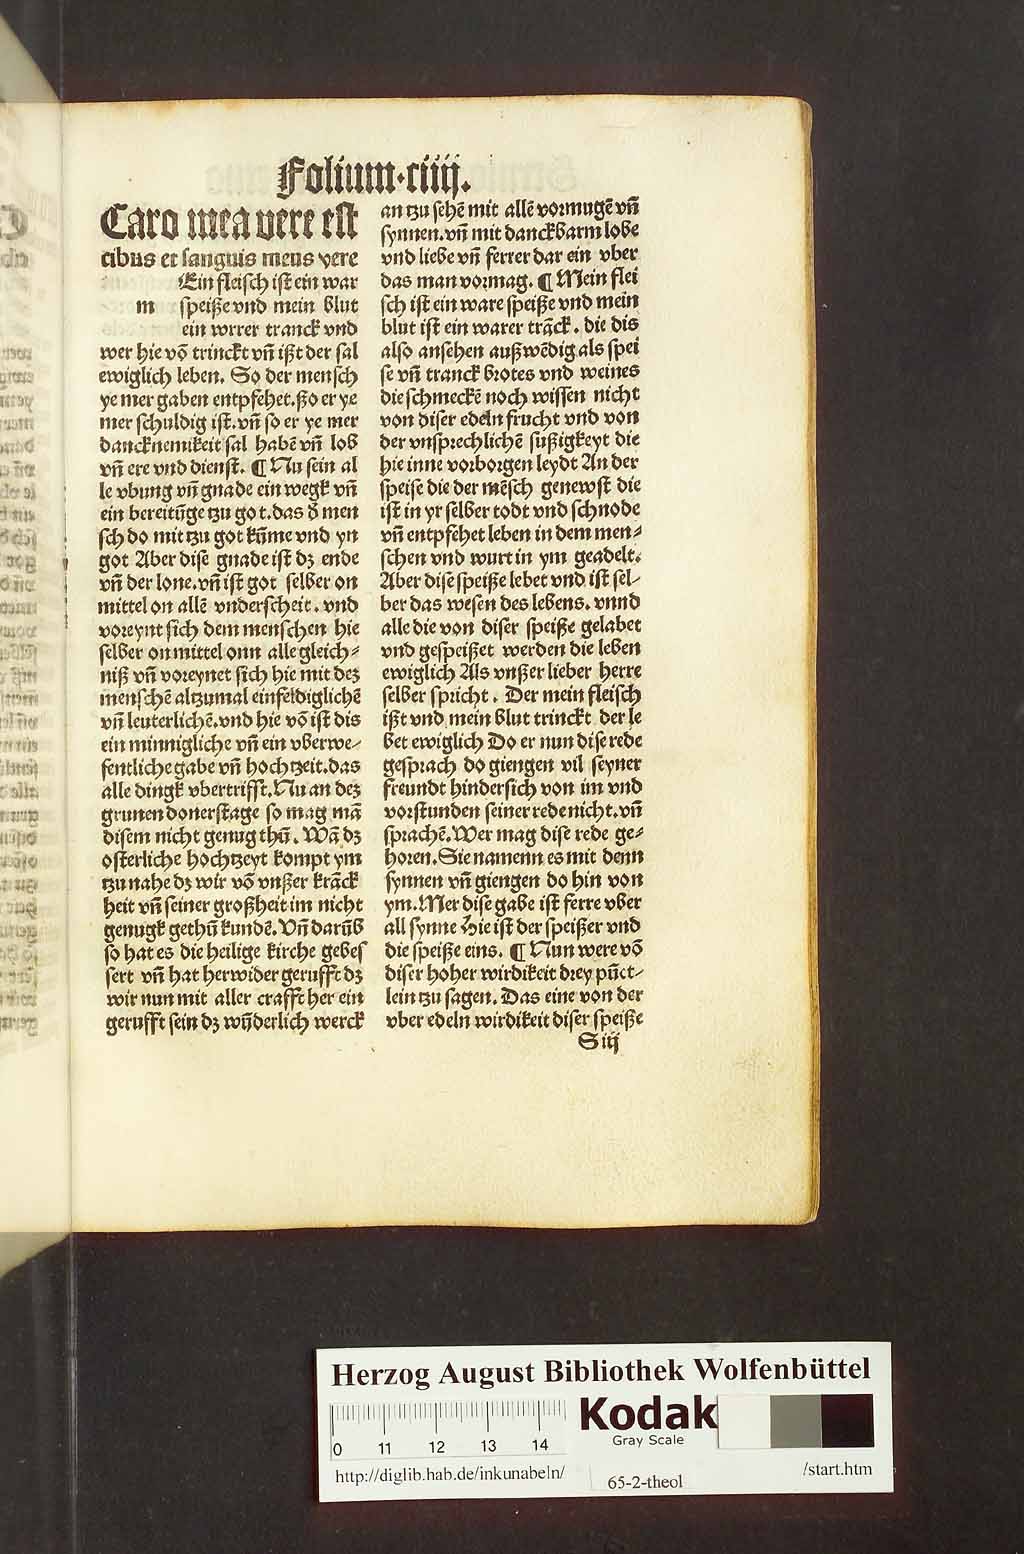 Folium·ciiij.
Caro mea vere est
cibus et sanguis meus vere
Ein fleisch ist ein war
m speiße vnd mein blut
ein wrrer tranck vnd
wer hie võ trinckt vñ ißt der sal
ewiglich leben. So der mensch
ye mer gaben entpfehet. ßo er ye
mer schuldig ist. vñ so er ye mer
dancknemikeit sal habē vñ lob
vñ ere vnd dienst. ¶ Nu sein al
le vbung vñ gnade ein wegk vñ
ein bereitũge tzu got. das d̕ men
sch do mit tzu got kũme vnd yn
got Aber dise gnade ist dz ende
vñ der lone. vñ ist got selber on
mittel on allē vnderscheit. vnd
voreynt sich dem menschen hie
selber on mittel onn alle gleich⸗
niß vñ voreynet sich hie mit dez
menschē altzumal einfeldiglichē
vñ leuterlichē. vnd hie võ ist dis
ein minnigliche vñ ein vberwe⸗
sentliche gabe vñ hochtzeit. das
alle dingk vbertrifft. Nu an dez
grunen donerstage so mag mã
disem nicht genug thũ. Wã dz
osterliche hochtzeyt kompt ym
tzu nahe dz wir võ vnßer krãck
heit vñ seiner großheit im nicht
genugk gethũ kundē. Vñ darũb
so hat es die heilige kirche gebes
sert vñ hat herwider gerufft dz
wir nun mit aller crafft her ein
gerufft sein dz wũderlich werck
an tzu sehē mit allē vormugē vñ
synnen. vñ mit danckbarm lobe
vnd liebe vñ ferrer dar ein vber
das man vormag. ¶ Mein flei
sch ist ein ware speiße vnd mein
blut ist ein warer trãck. die dis
also ansehen außwēdig als spei
se vñ tranck brotes vnd weines
die schmeckē noch wissen nicht
von diser edeln frucht vnd von
der vnsprechlichē sußigkeyt die
hie inne vorborgen leydt An der
speise die der mēsch genewst die
ist in yr selber todt vnd schnode
vñ entpfehet leben in dem men⸗
schen vnd wurt in ym geadelt.
Aber dise speiße lebet vnd ist sel⸗
ber das wesen des lebens. vnnd
alle die von diser speiße gelabet
vnd gespeißet werden die leben
ewiglich Als vnßer lieber herre
selber spricht. Der mein fleisch
ißt vnd mein blut trinckt der le
bet ewiglich Do er nun dise rede
gesprach do giengen vil seyner
freundt hindersich von im vnd
vorstunden seiner rede nicht. vñ
sprachē. Wer mag dise rede ge⸗
horen. Sie namenn es mit denn
synnen vñ giengen do hin von
ym. Mer dise gabe ist ferre vber
all synne Hie ist der speißer vnd
die speiße eins. ¶ Nun were võ
diser hoher wirdikeit drey pũct⸗
lein tzu sagen. Das eine von der
vber edeln wirdikeit diser speiße
S iij
Herzog August Bibliothek Wolfenbüttel
Kodak
Gray Scale
0 11 12 13 14
http://diglib.hab.de/inkunabeln/
65-2-theol
/start.htm